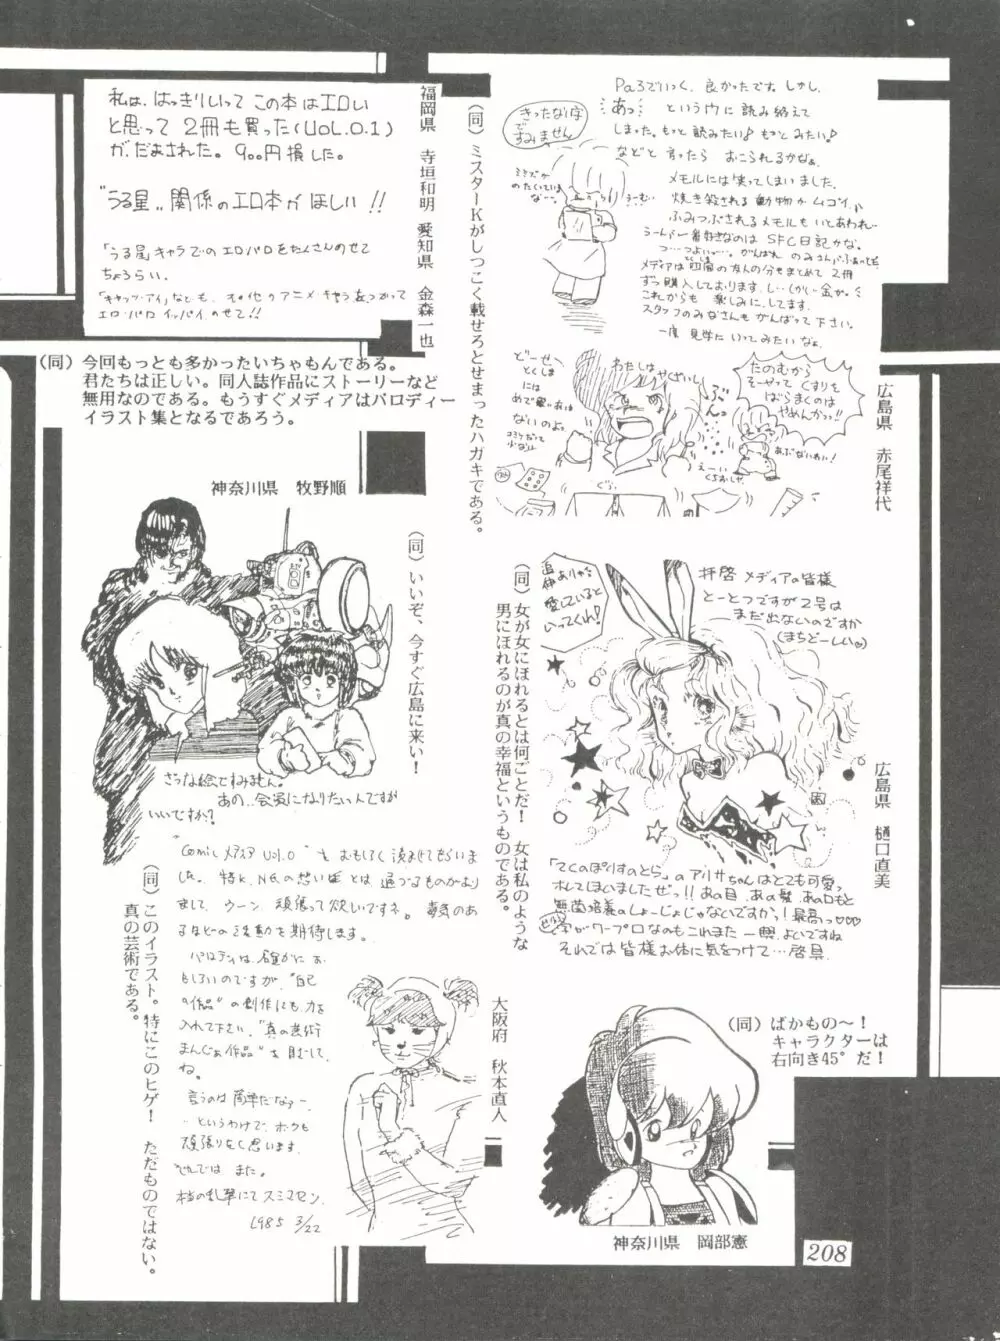 私は、はっきりいって この本はエロい
と思って 2冊も買った(VOL.0.1)
が、だまされた。900円損した。
"うる星〟関係のエロ本がほしい!!
「うる星」キャラでの エロパロをたくさんのせて
ちょうらい。
「キャッツ・アイ」なども、その他のアニメ・キャラをつかって
エロ・パロ イッパイ のせて!!
福岡県 寺垣和明 愛知県 金森一也
(同)ミスターKがしつこく載せろとせまったハガキである。
(同)今回もっとも多かったいちゃもんである。
君たちは正しい。同人誌作品にストーリーなど
無用なのである。もうすぐメディアはパロディー
イラスト集となるであろう。
きったない字
ですみません
Pa3でいっく、良かったです。しかし、
あっ… というマに 読み終えて
しまった。もっと読みたい♪ もっと みたい♪
などと 言ったら おこられるかなぁ。
メモルには笑ってしまいました。
焼き殺される 動物か ムゴイ、
ふみつぶされるメモルも いとあわれ…
うーんが一番好きなのは SFC日記かな。
メディアは四周の友人の分もまとめて 2冊
ずつ購入しております。し…しかし金が。
これからも 楽しみに してます。
スタッフのみなさんも がんばって 下さい。
一度 見学に いってみたい なぁ。
どーせ
とくしま
には
めで
ないのよ。
わたしは やさいし
ぶん
たのむから
そーやって くすりを
ばらまくのは
やめんかっ!!
あぶないわい!
えーい
ぐぅ…
広島県 赤尾祥代
神奈川県 牧野順
(同)いいぞ、今すぐ広島に来い!
きったな絵ですみません。
あの…会員になりたい人ですが
いいですか?
(同)女が女にほれるとは何ごとだ! 女は私のような
男にほれるのが真の幸福というものである。
愛していると
いってくれ!
拝啓 メディアの皆様
とーとつですが2号は
まだ出ないのですか
(まちどーしい)
「てくのぽりすのとら」のアリサちゃんはとても可愛っ
ホレてしまいましたぜっ!! あの目、あの髪、あの口もと
無菌培養のしょーじょじゃないですかっ! 最高っ♡♡♡
字がワープロなのもこれまた一興、よいですね
それでは 皆様 お体に気をつけて…啓具
広島県 樋口直美
"Comic メディア Vol.0" を おもしろく 読ませてもらいま
した。特K.N.Gの想い
まして、ウーン、頑張って欲しいですネ。毒気のあ
るほどの活動を期待します。
パロディは、確かに お
もしろいのですが、"自己
の作品" の創作にも 力を
入れて下さい。"真の芸術
まんがぁ作品" を 目ざして
ね。
言うのは 簡単だなァー、
…というわけで、ボクも
頑張りなく思います。
それでは また。
本当の乱筆にて スミマセン。
1985 3/22
(同)このイラスト。特にこのヒゲ! ただものではない。
真の芸術である。
大阪府 秋本直人
(同)ばかもの〜!
キャラクターは
右向き45°だ!
神奈川県 岡部憲
208